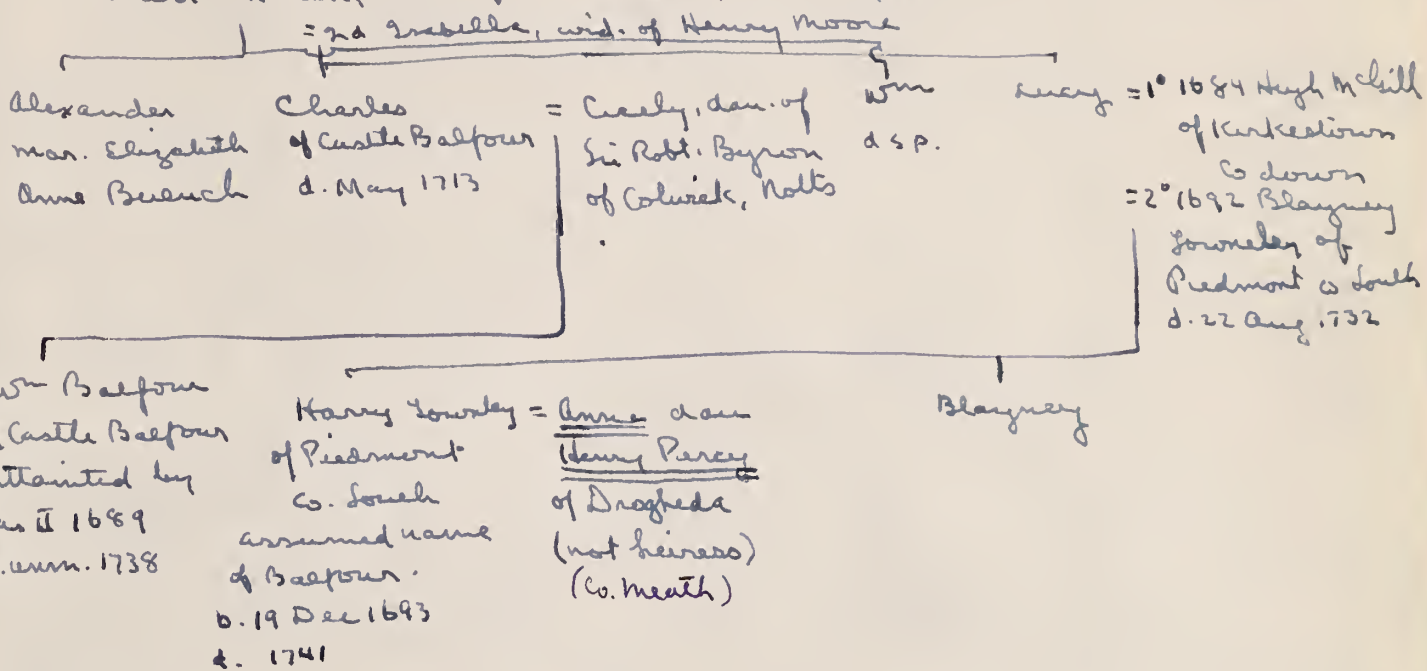 = 2d Isabella, wid. of Henry Moore
Alexander
mar. Elizabeth
Anne
Charles
of Castle Balfour
d. May 1713
= Cicely, dau. of
Sir Robt. Byron
of Colwick, Notts
Wm
d s p.
Lucy = 1° 1684 Hugh McGill
of Kirkestown
Co down
= 2° 1692 Blayney
Townley of
Piedmont co Louth
d. 22 Aug. 1732
Wm Balfour
Castle Balfour
attainted by
II 1689
unm. 1738
Harry Townley = Anne dau
of Piedmont
co. Louth
assumed name
of Balfour.
b. 19 Dec 1693
d. 1741
Henry Percy
of Drogheda
(not heiress)
(Co. Meath)
Blayney